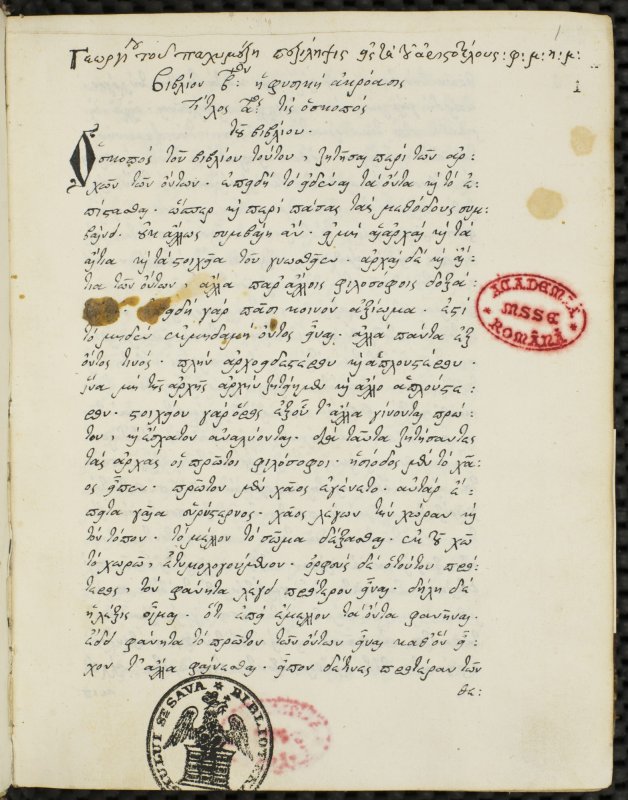 Γεωργίου τοῦ παχυμέρη εἰς τὰ τοῦ ἀριστοτέλους· φ: μ: η: μ:
1
βιβλίον βον: ἡ φυσικὴ ἀκρόασις
τίτλος αος: τίς ὁ σκοπὸς
τοῦ βιβλίου.
Ὁ σκοπὸς τοῦ βιβλίου τούτου, ζητῆσαι περὶ τῶν ἀρ:
χῶν τῶν ὄντων· ἐπειδὴ τὸ εἰδέναι τὰ ὄντα καὶ τὸ ἐ:
πίστασθαι, ὥσπερ καὶ περὶ πάσας τὰς μεθόδους συμ:
βαίνει· οὐκ ἄλλως συμβαίη ἂν· εἰ μὴ αἱ ἀρχαὶ καὶ τὰ
αἴτια καὶ τὰ στοιχεῖα τού γνωσθεῖεν· ἀρχαὶ δὲ καὶ αἴ:
τια τῶν ὄντων, ἄλλα παρ' ἄλλοις φιλοσόφοις δοξά:
ἐπειδὴ γὰρ πᾶσι κοινὸν ἀξίωμα·
τὸ μηδὲν ἐκ μηδαμῆ ὄντος εἶναι· ἀλλὰ πάντα ἐξ
ὄντος τινός· πλὴν ἀρχοειδεστέρου καὶ ἁπλουστέρου·
ἵνα μὴ τῆς ἀρχῆς ἀρχὴν ζητῶμεν καὶ ἄλλο ἁπλούστε:
ρον· στοιχεῖον γὰρ ἐξ οὗ τ' ἄλλα γίνονται πρώ:
του, καὶ ἔσχατον ἀναλύονται. διὰ ταῦτα ζητήσαντες
τὰς ἀρχὰς οἱ πρῶτοι φιλόσοφοι· ἡσίοδος μὲν τὸ χά:
ος εἶπεν· πρῶτον μὲν χάος ἐγένετο· αὐτὰρ ἔ:
πειτα γαῖα εὐρύστερνος· χάος λέγων τὴν χώραν καὶ
τὸν τόπον· τὸ μέλλον τὸ σῶμα δέξασθαι· ἐκ τοῦ χῶ
τὸ χωρῶ, ἐτυμολογούμενον· ὀρφεὺς δὲ ὁ τούτου πρό:
τερος, τὸν φάνητα λέγει πρότερον εἶναι· δηλοῖ δὲ
ἡ λέξις οἶμαι· ὅτι ἐπεὶ ἔμελλον τὰ ὄντα φανῆναι·
ἔδει φάνητα τὸ πρῶτον τῶν ὄντων εἶναι καθ' ὃν εἶ:
χον τ' ἄλλα φαίνεσθαι· εἶπον δέ τινες πρότερον τῶν
θα:
ACADEMIA
MSSE
ROMÂNĂ
SF SAVA * BIBLIOTE